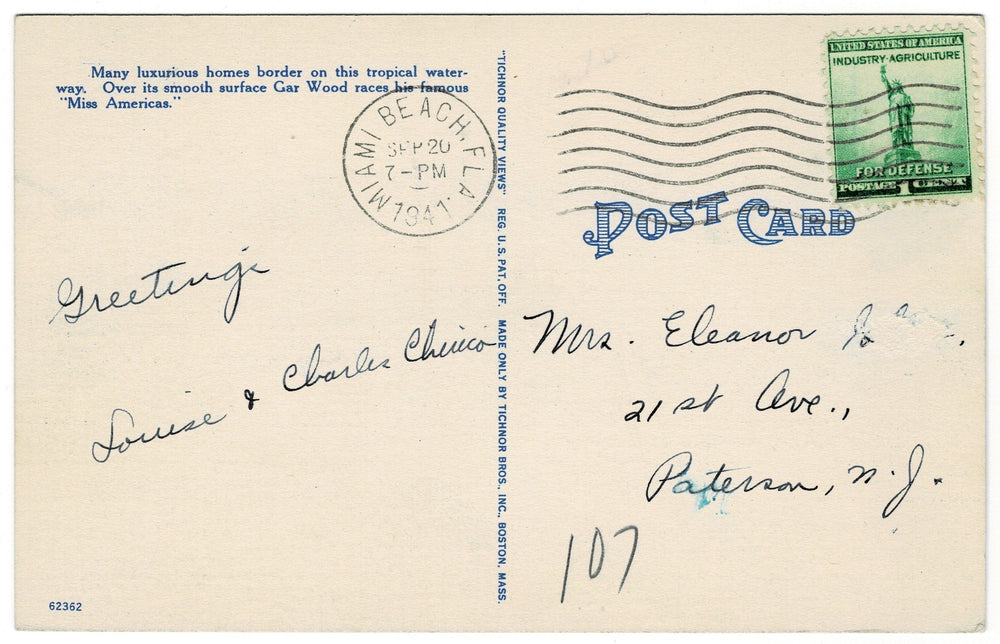 Many luxurious homes border on this tropical water-
way. Over its smooth surface Gar Wood races his famous
"Miss Americas."
MIAMI BEACH, FLA.
SEP 20
7-PM
1941
UNITED STATES OF AMERICA
INDUSTRY·AGRICULTURE
FOR DEFENSE
POSTAGE 1 CENT
POST CARD
"TICHNOR QUALITY VIEWS" REG. U.S. PAT. OFF. MADE ONLY BY TICHNOR BROS., INC., BOSTON, MASS.
Greetings
Louise & Charles Chirico
Mrs. Eleanor
21st Ave.,
Paterson, N.J.
107
62362